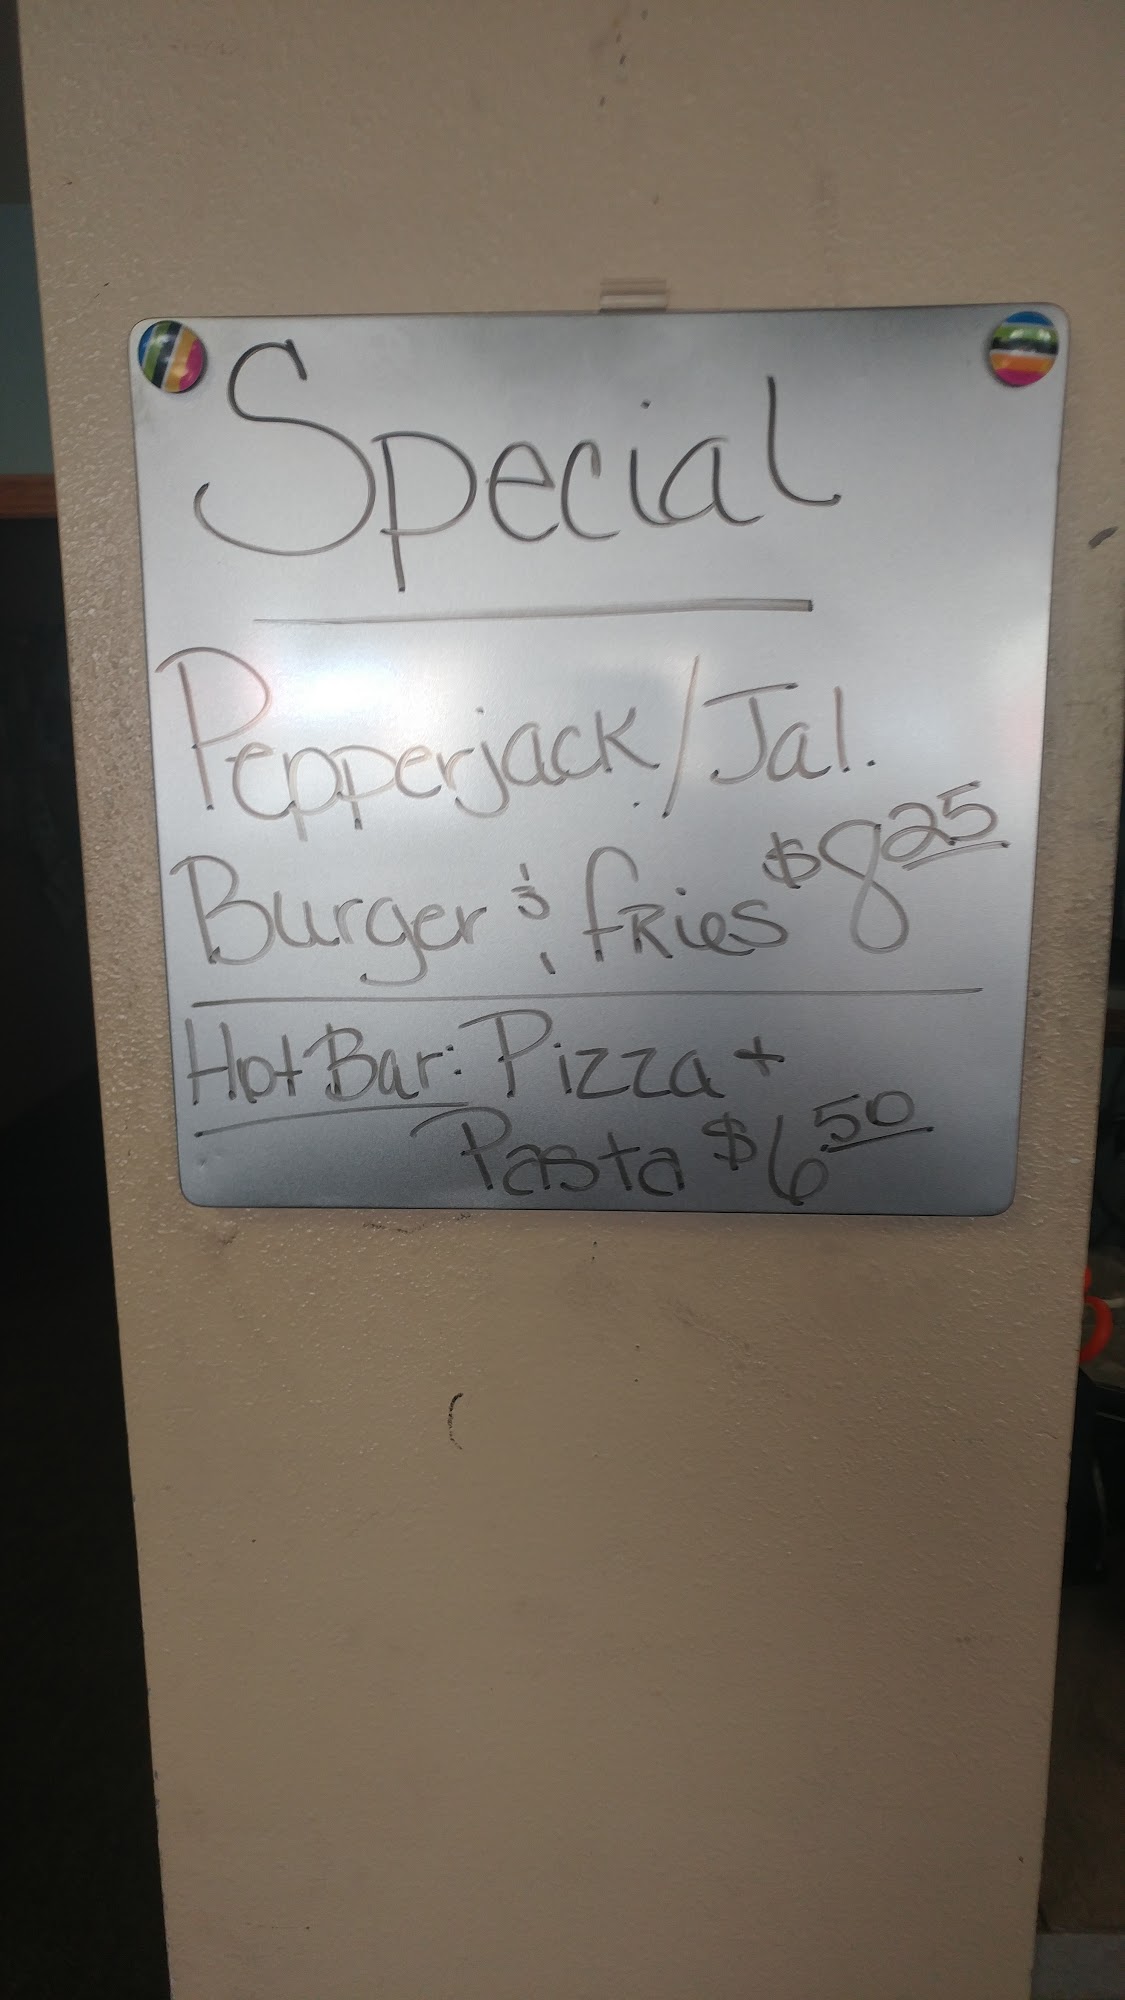 Special
Pepperjack/Jal.
Burger & fries $8.25
Hot Bar: Pizza +
Pasta $6.50